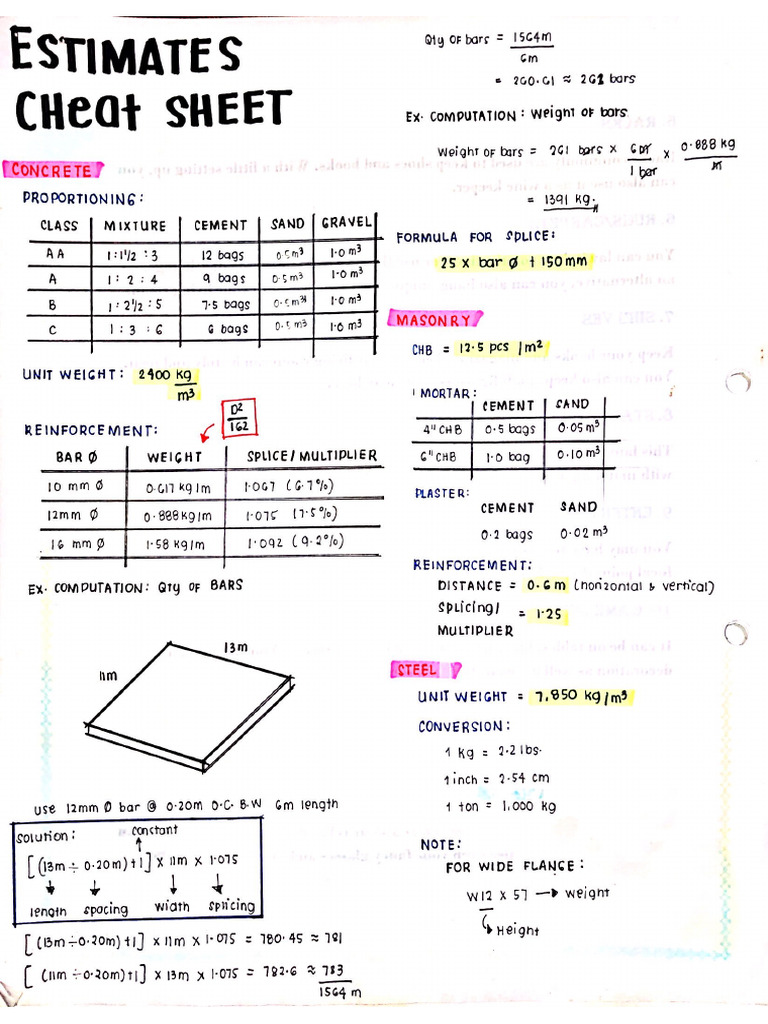 ESTIMATES
CHEAT SHEET
CONCRETE
PROPORTIONING:
CLASS | MIXTURE | CEMENT | SAND | GRAVEL
AA | 1:1½:3 | 12 bags | 0.5m³ | 1.0 m³
A | 1:2:4 | 9 bags | 0.5m³ | 1.0 m³
B | 1:2½:5 | 7.5 bags | 0.5m³ | 1.0 m³
C | 1:3:6 | 6 bags | 0.5m³ | 1.0 m³
UNIT WEIGHT: 2400 kg/m³
D²/162
REINFORCEMENT:
BAR Ø | WEIGHT | SPLICE/MULTIPLIER
10 mm Ø | 0.617 kg/m | 1.067 (6.7%)
12mm Ø | 0.888kg/m | 1.075 (7.5%)
16 mm Ø | 1.58 kg/m | 1.092 (9.2%)
EX. COMPUTATION: QTY OF BARS
13m
11m
USE 12mm Ø bar @ 0.20m O.C. B.W 6m length
Solution: constant
[(13m ÷ 0.20m)+1] x 11m x 1.075
length spacing width splicing
[(13m÷0.20m)+1] x 11m x 1.075 = 780.45 ≈ 781
[(11m ÷0.20m)+1] x 13m x 1.075 = 782.6 ≈ 783
1564 m
Qty OF bars = 1564m/6m
= 260.61 ≈ 261 bars
EX. COMPUTATION: Weight OF bars
Weight of bars = 261 bars x 6m/1 bar x 0.888 kg/m
= 1391 kg.
FORMULA FOR SPLICE:
25 x bar Ø + 150mm
MASONRY
CHB = 12.5 pcs /m²
MORTAR:
CEMENT | SAND
4" CHB | 0.5 bags | 0.05 m³
6" CHB | 1.0 bag | 0.10 m³
PLASTER:
CEMENT SAND
0.2 bags 0.02 m³
REINFORCEMENT:
DISTANCE = 0.6m (horizontal & vertical)
Splicing/
MULTIPLIER = 1.25
STEEL
UNIT WEIGHT = 7,850 kg/m³
CONVERSION:
1 kg = 2.2 lbs.
1 inch = 2.54 cm
1 ton = 1,000 kg
NOTE:
FOR WIDE FLANGE:
W12 X 57 → weight
Height